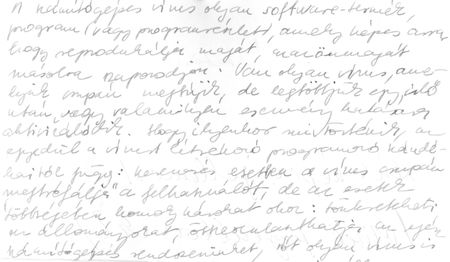 A számítógépes vírus olyan software-termék,
program (vagy programrészlet), amely képes arra,
hogy reprodukálja magát, azaz önmagát
másolva szaporodjon. Van olyan vírus, ame-
lyik csupán megbújik, de legtöbbjük egy idő
után, vagy valamilyen esemény hatására
aktivizálódik. Hogy ilyenkor mi történik, az
egyedül a vírust létrehozó programozó szándé-
kaitól függ: kevesebb esetben a vírus csupán
megtréfálja a felhasználót, de az esetek
többségében komoly károkat okoz: tönkreteheti
az állományokat, összezavarhatja az egész
számítógépes rendszerünket, sőt olyan vírus is